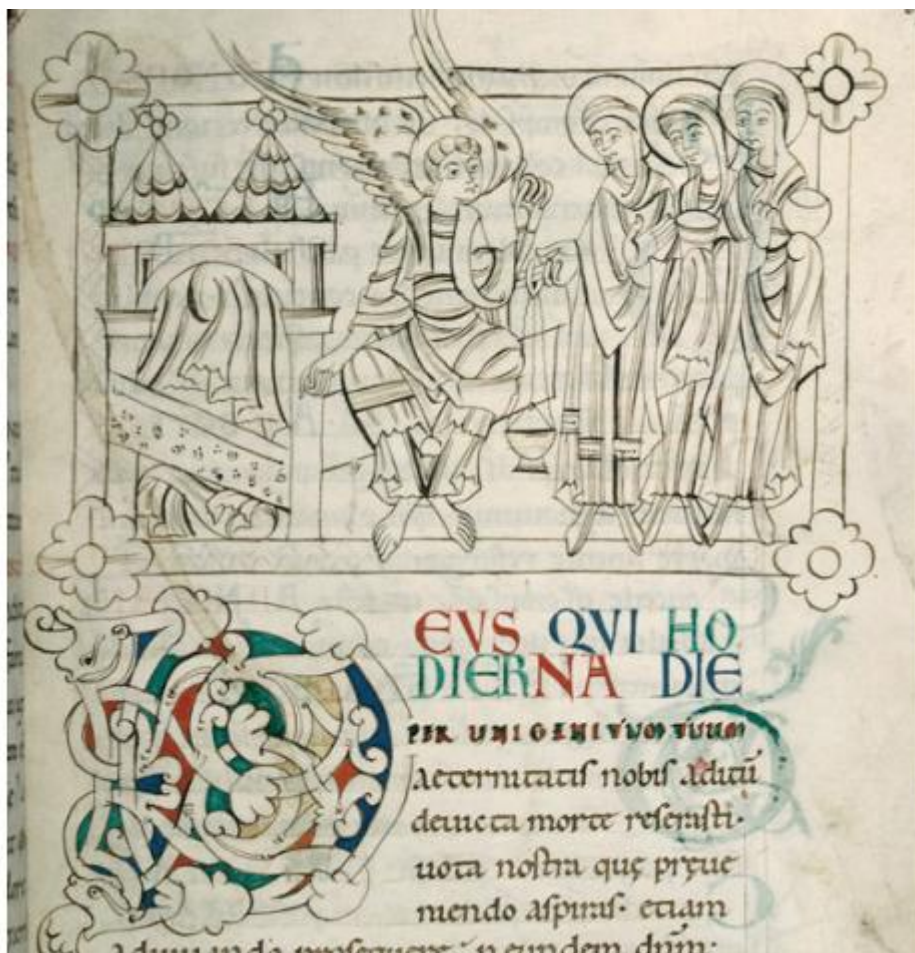 DEVS QVI HO
DIERNA DIE
PER UNIGENITUM TUUM
aeternitatis nobis aditū
deuicta morte reserasti·
uota nostra quę pręue
niendo aspiras· etiam
adiuuando prosequere· p eundem dnm̄: